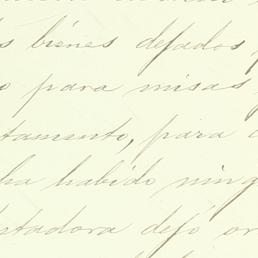 s bienes dejados
o para misas
tamento, para
ha habido ning
stadora dejó or